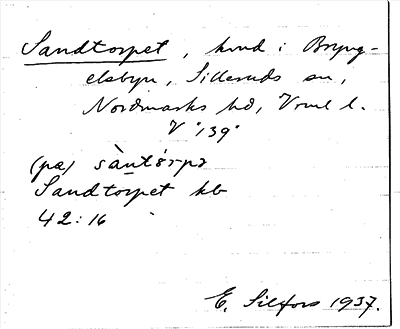 Sandtorpet, hmd i Bryng-
elsbyn, Silleruds sn,
Nordmarks hd, Vrml l.
V "139"
(pa) sàntórpə
Sandtorpet kb
42:16
E. Silfors 1937.